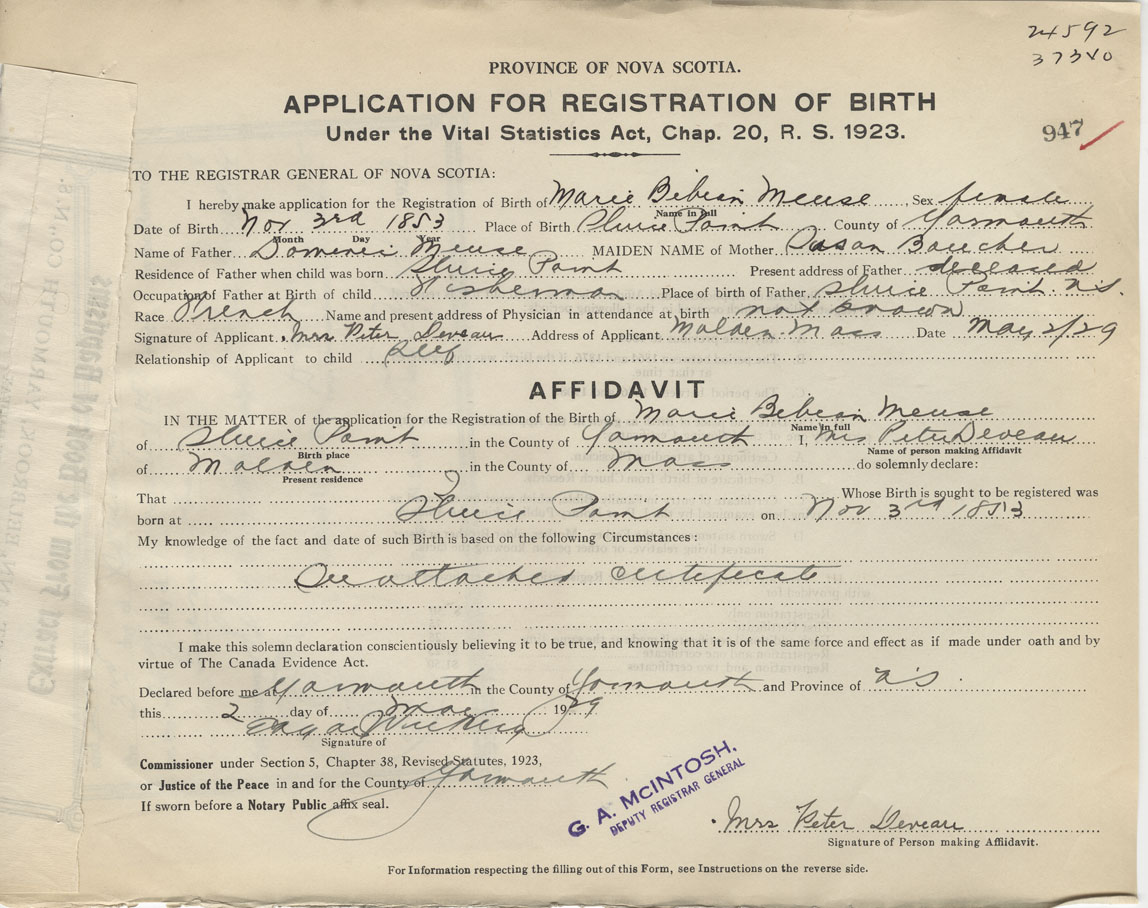 24592
37340
PROVINCE OF NOVA SCOTIA.
APPLICATION FOR REGISTRATION OF BIRTH
Under the Vital Statistics Act, Chap. 20, R. S. 1923.
947
TO THE REGISTRAR GENERAL OF NOVA SCOTIA:
I hereby make application for the Registration of Birth of Marie Bibean Meuse Sex female
Name in full
Date of Birth Nov 3rd 1853 Place of Birth Sluice Point County of Yarmouth
Month Day Year
Name of Father Dominic Meuse MAIDEN NAME of Mother Susan Boucher
Residence of Father when child was born Sluice Point Present address of Father deceased
Occupation of Father at Birth of child Fisherman Place of birth of Father Sluice Point N.S.
Race French Name and present address of Physician in attendance at birth not known
Signature of Applicant Mrs Peter Deveau Address of Applicant Malden Mass Date May 2/29
Relationship of Applicant to child Self
AFFIDAVIT
IN THE MATTER of the application for the Registration of the Birth of Marie Bibean Meuse
Name in full
of Sluice Point in the County of Yarmouth I, Mrs Peter Deveau
Birth place Name of person making Affidavit
of Malden in the County of Mass do solemnly declare:
Present residence
That Whose Birth is sought to be registered was
born at Sluice Point on Nov 3rd 1853
My knowledge of the fact and date of such Birth is based on the following Circumstances:
See attached certificate
I make this solemn declaration conscientiously believing it to be true, and knowing that it is of the same force and effect as if made under oath and by
virtue of The Canada Evidence Act.
Declared before me at Yarmouth in the County of Yarmouth and Province of N.S.
this 2 day of May 1929
Edgar
Signature of
Commissioner under Section 5, Chapter 38, Revised Statutes, 1923,
or Justice of the Peace in and for the County of Yarmouth
If sworn before a Notary Public affix seal.
G. A. McINTOSH,
DEPUTY REGISTRAR GENERAL
Mrs Peter Deveau
Signature of Person making Affidavit.
For Information respecting the filling out of this Form, see Instructions on the reverse side.